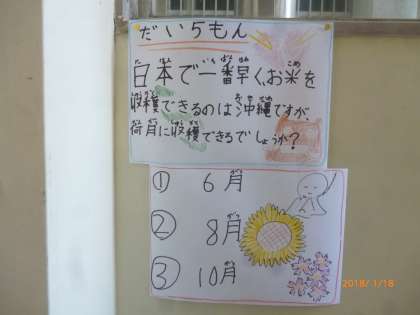 だい5もん
日本で一番早く、お米を
収穫できるのは沖縄ですが、
荷月に収穫できるでしょうか?
① 6月
② 8月
③ 10月
2018/1/18